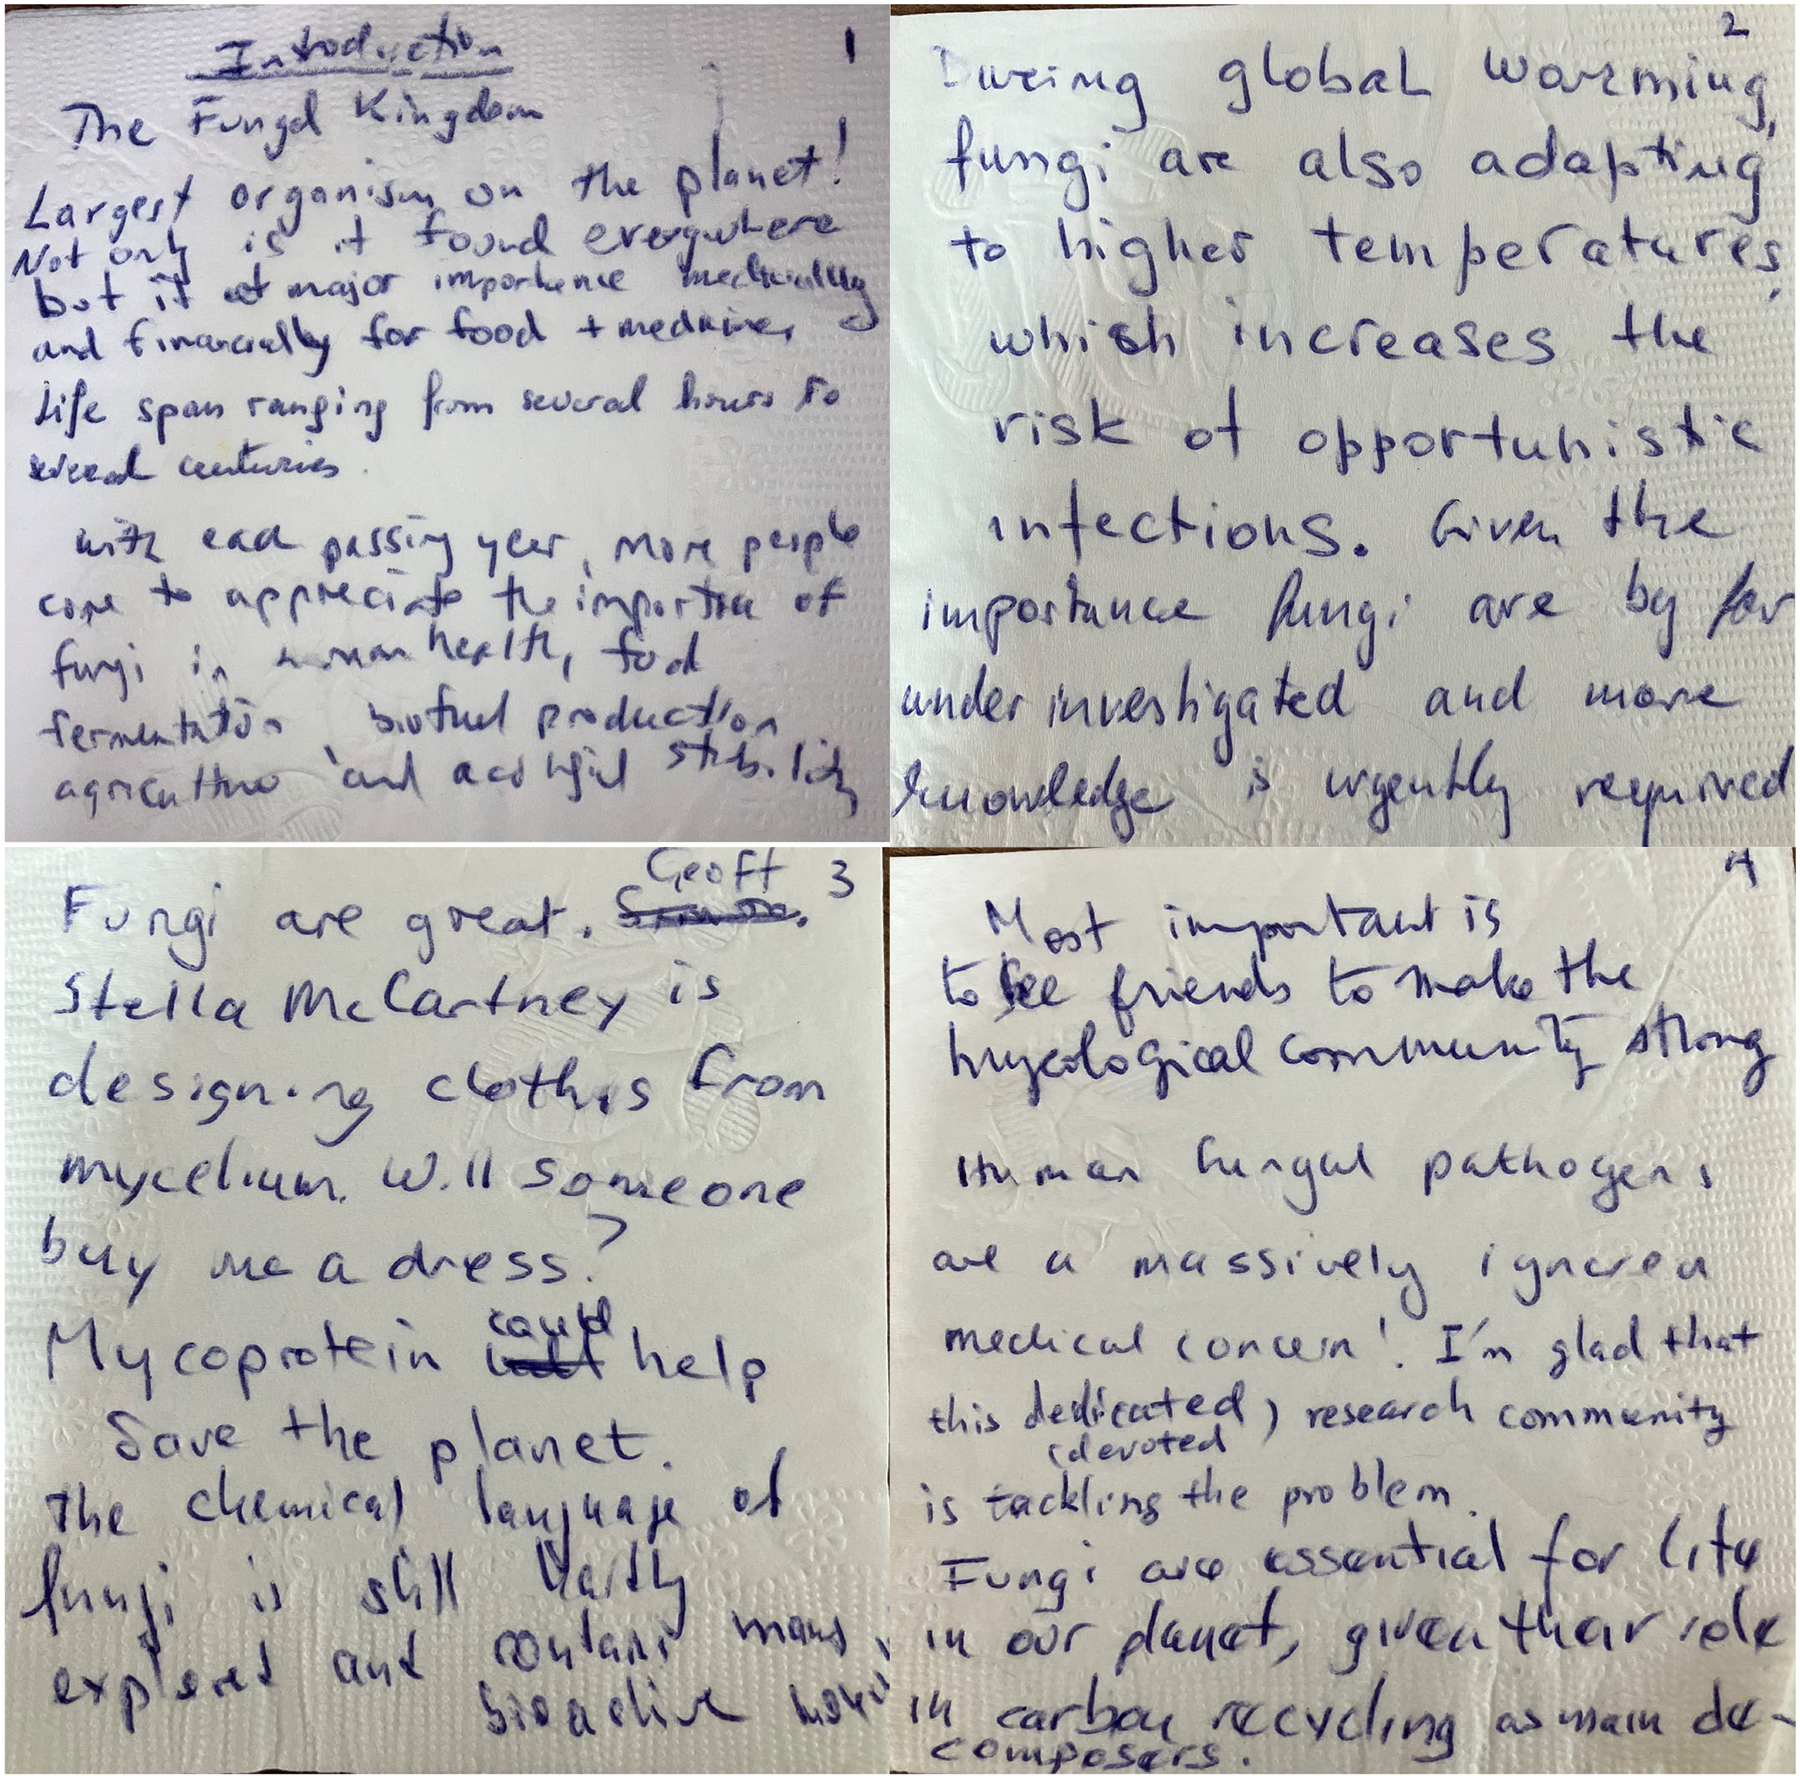 1
Introduction
The Fungal Kingdom
Largest organism on the planet!
Not only is it found everywhere
but it of major importance medicinally
and financially for food + medicine,
Life span ranging from several hours to
several centuries.
with each passing year, more people
come to appreciate the importance of
fungi in human health, food
fermentation biofuel production
agriculture and stability
2
During global warming,
fungi are also adapting
to higher temperatures,
which increases the
risk of opportunistic
infections. Given the
importance fungi are by far
under investigated and more
knowledge is urgently required
3
Geoff
Fungi are great.
Stella McCartney is
designing clothes from
mycelium. Will someone
buy me a dress?
could
Mycoprotein help
Save the planet.
The chemical language of
fungi is still
explored and contains many
bioactive
4
Most important is
to see friends to make the
mycological community strong
Human fungal pathogens
are a massively ignored
medical concern! I'm glad that
this dedicated) research community
(devoted
is tackling the problem.
Fungi are essential for life
in our planet, given their role
in carbon recycling as main de-
composers.